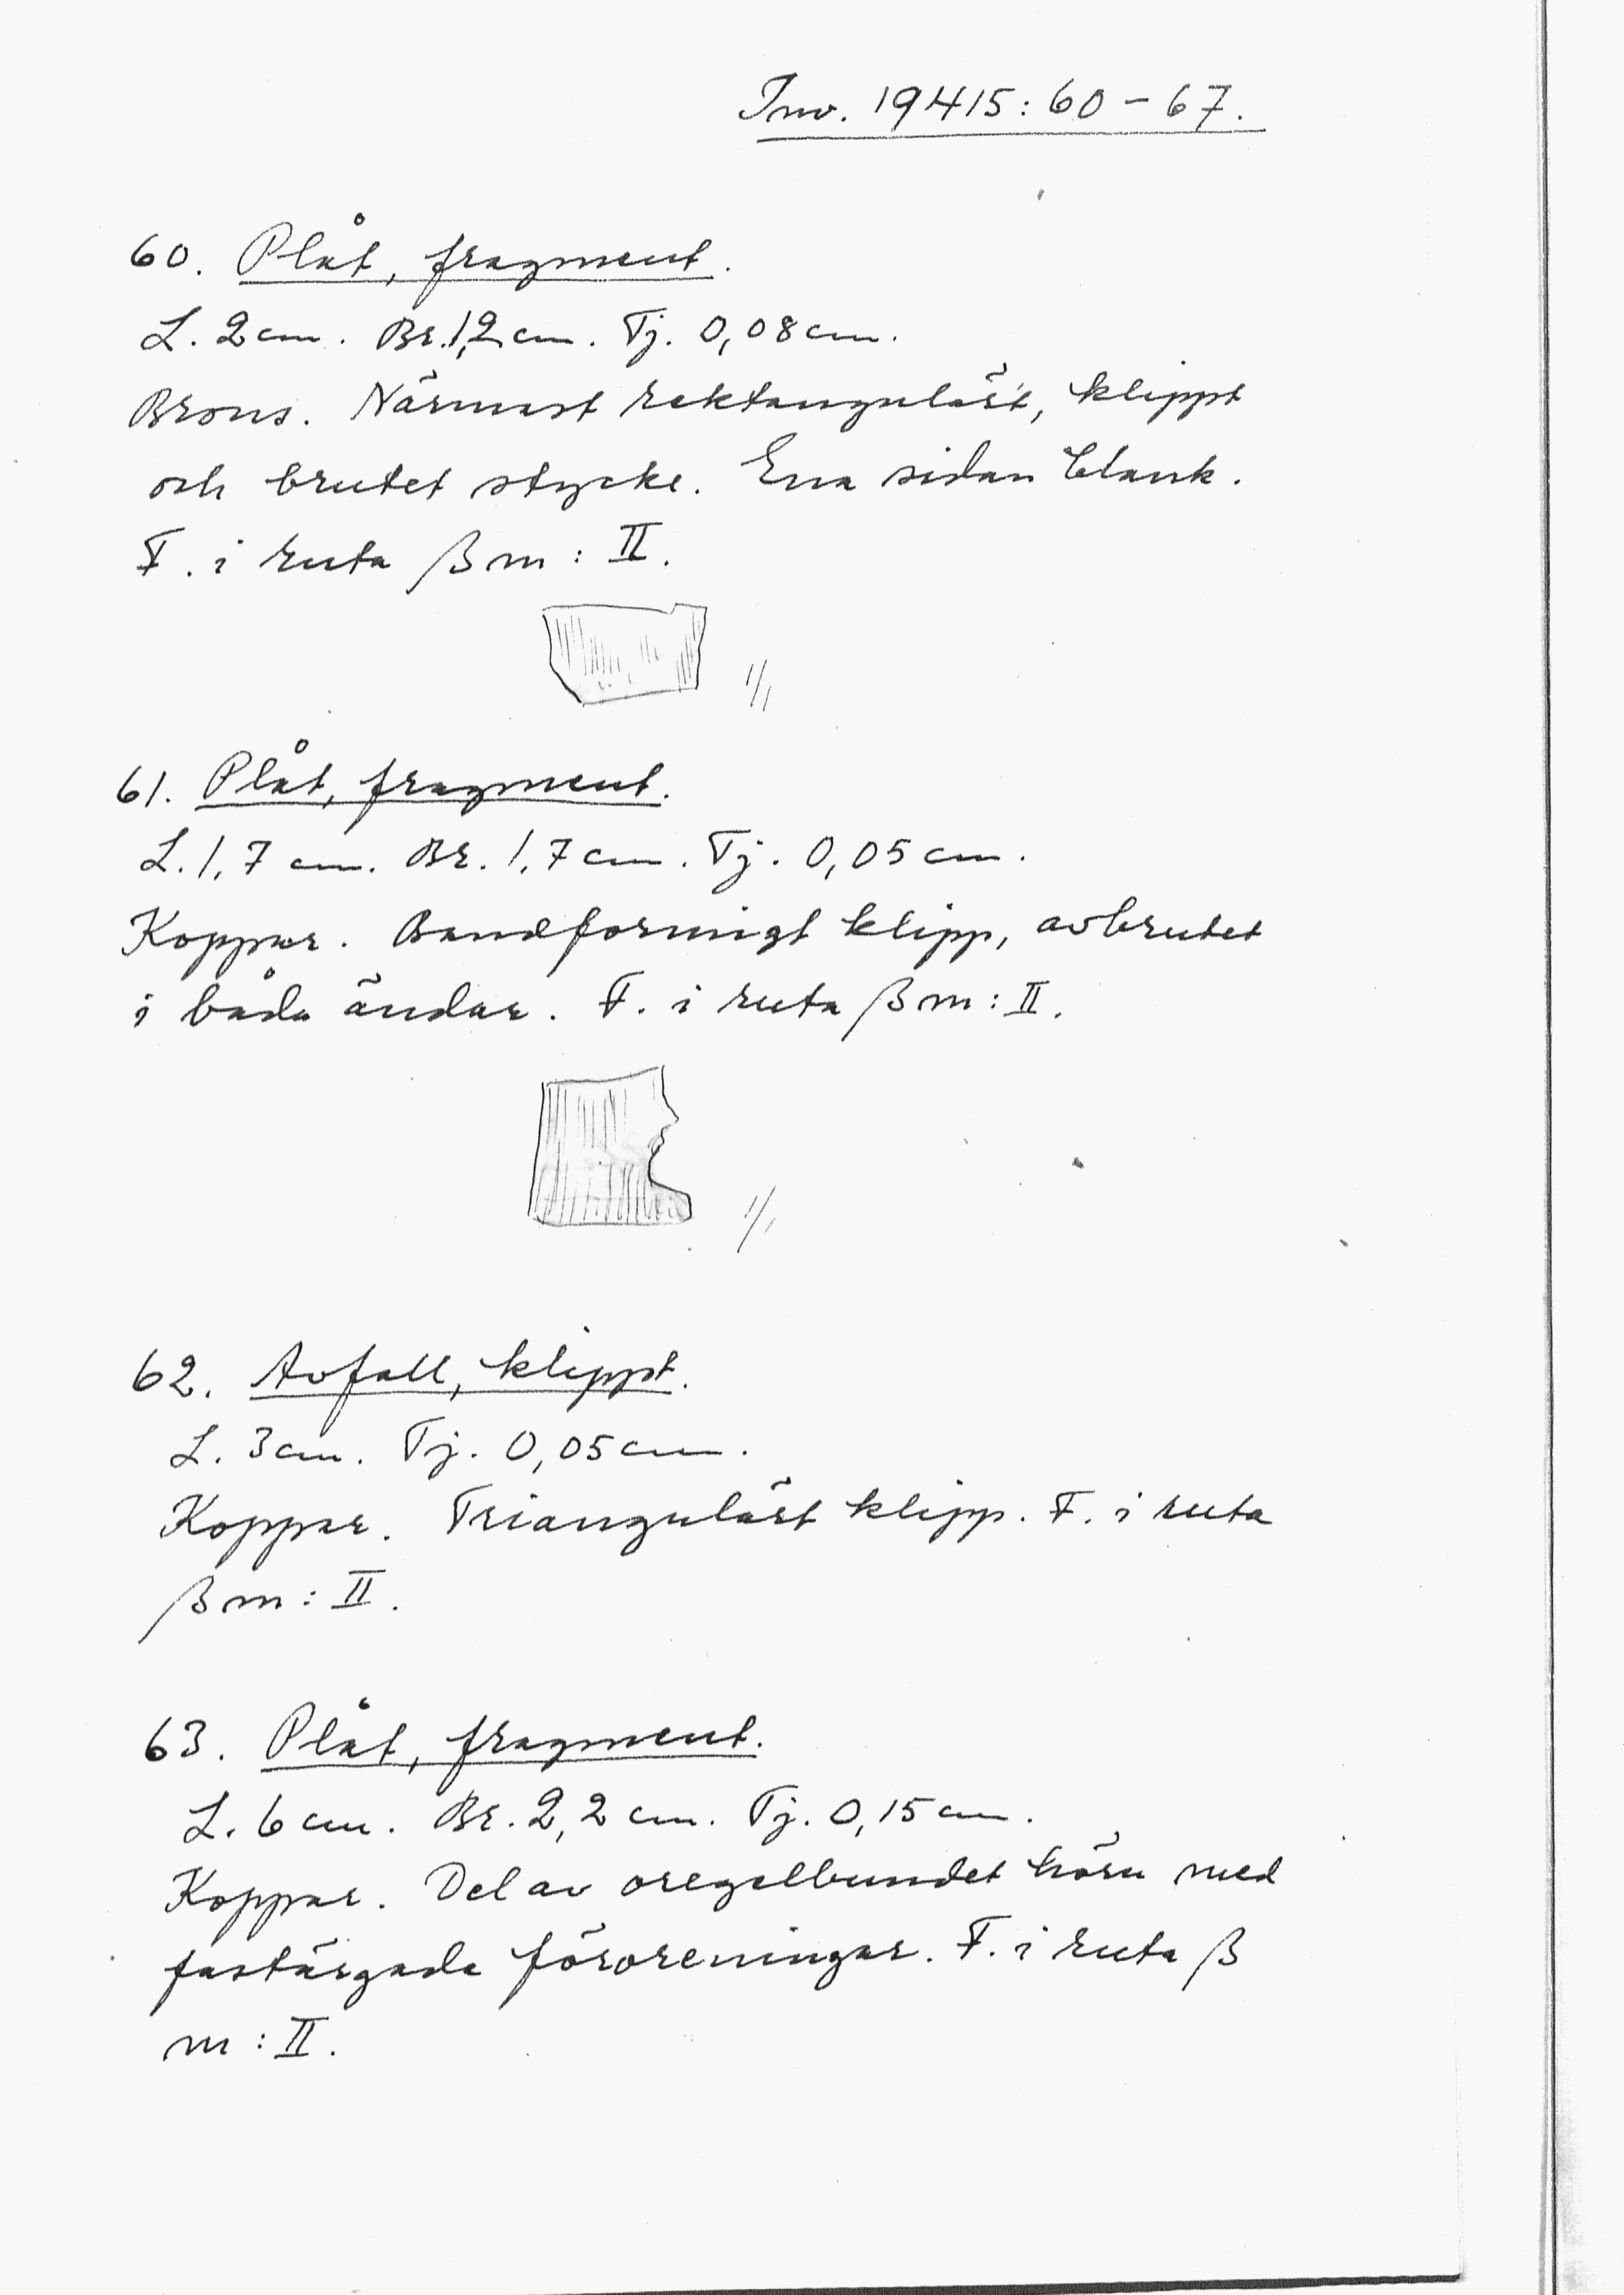 Inv. 19415:60-67.
60. Plåt, fragment.
L. 2 cm. Br. 1,2 cm. Tj. 0,08 cm.
Brons. Närmast rektangulärt, klippt
och brutet stycke. Ena sidan blank.
F. i ruta βm: II.
1/1
61. Plåt, fragment.
L. 1,7 cm. Br. 1,7 cm. Tj. 0,05 cm.
Koppar. Bandformigt klipp, avbrutet
i båda ändar. F. i ruta βm: II.
1/1
62. Avfall, klippt.
L. 3 cm. Tj. 0,05 cm.
Koppar. Triangulärt klipp. F. i ruta
βm: II.
63. Plåt, fragment.
L. 6 cm. Br. 2,2 cm. Tj. 0,15 cm.
Koppar. Del av oregelbundet hörn med
fastärgade föroreningar. F. i ruta β
m: II.